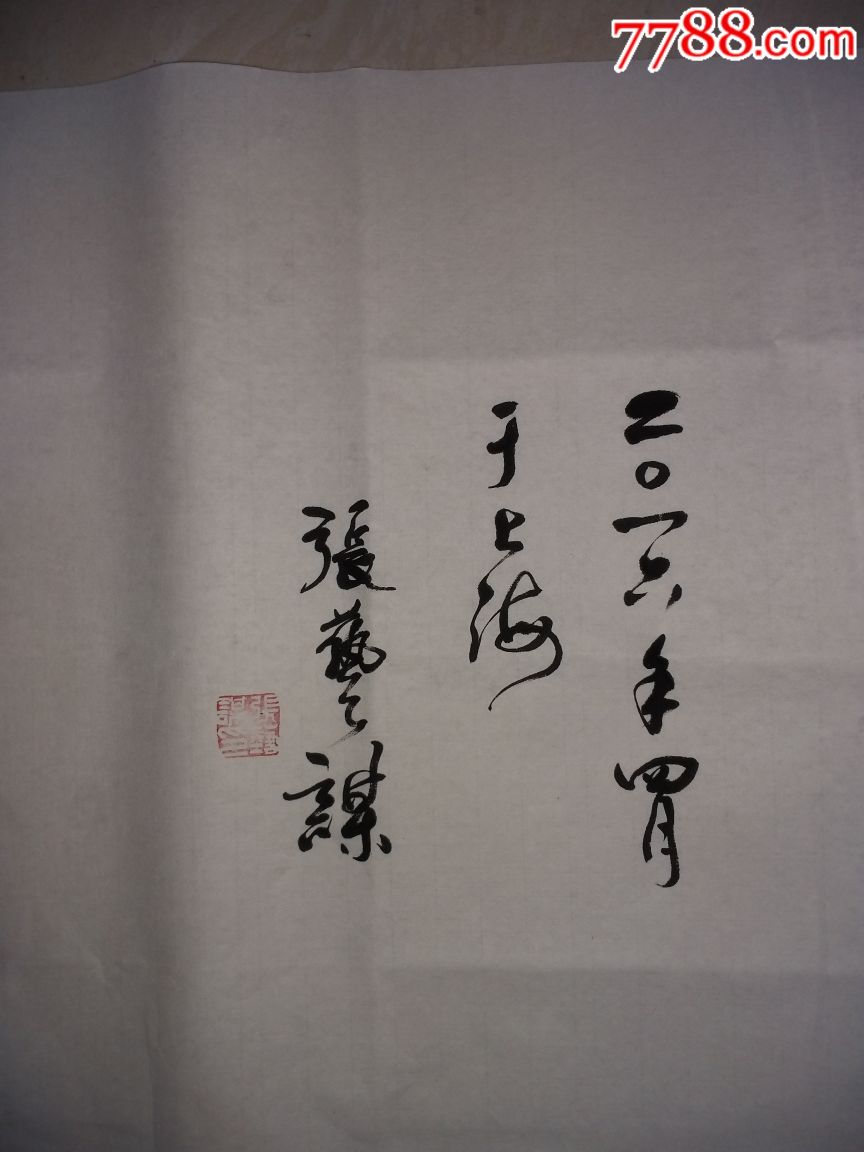 7788.com
二〇一六年四月
于上海
張藝謀